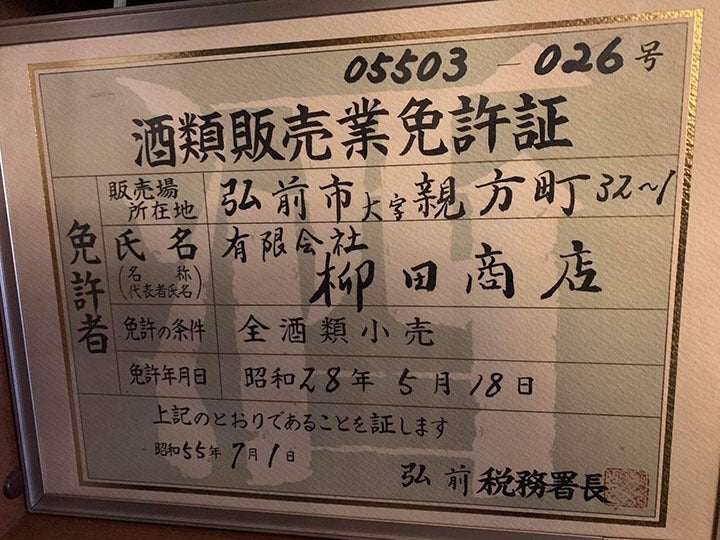 05503-026号
酒類販売業免許証
免許者
販売場所在地
弘前市大字親方町32~1
氏名
(名称代表者氏名)
有限会社
柳田商店
免許の条件
全酒類小売
免許年月日
昭和28年5月18日
上記のとおりであることを証します
昭和55年7月1日
弘前税務署長